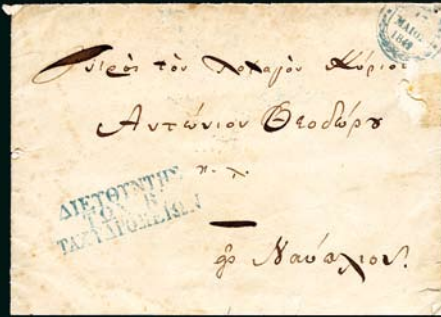 ΜΑΙΟΣ
184
Πρὸς τὸν Λοχαγὸν Κύριον
Ἀντώνιον Θεοδώρου
κ. λ.
ΔΙΕΥΘΥΝΤΗΣ
ΤΩΝ Β.
ΤΑΧΥΔΡΟΜΕΙΩΝ
Ναύπλιον